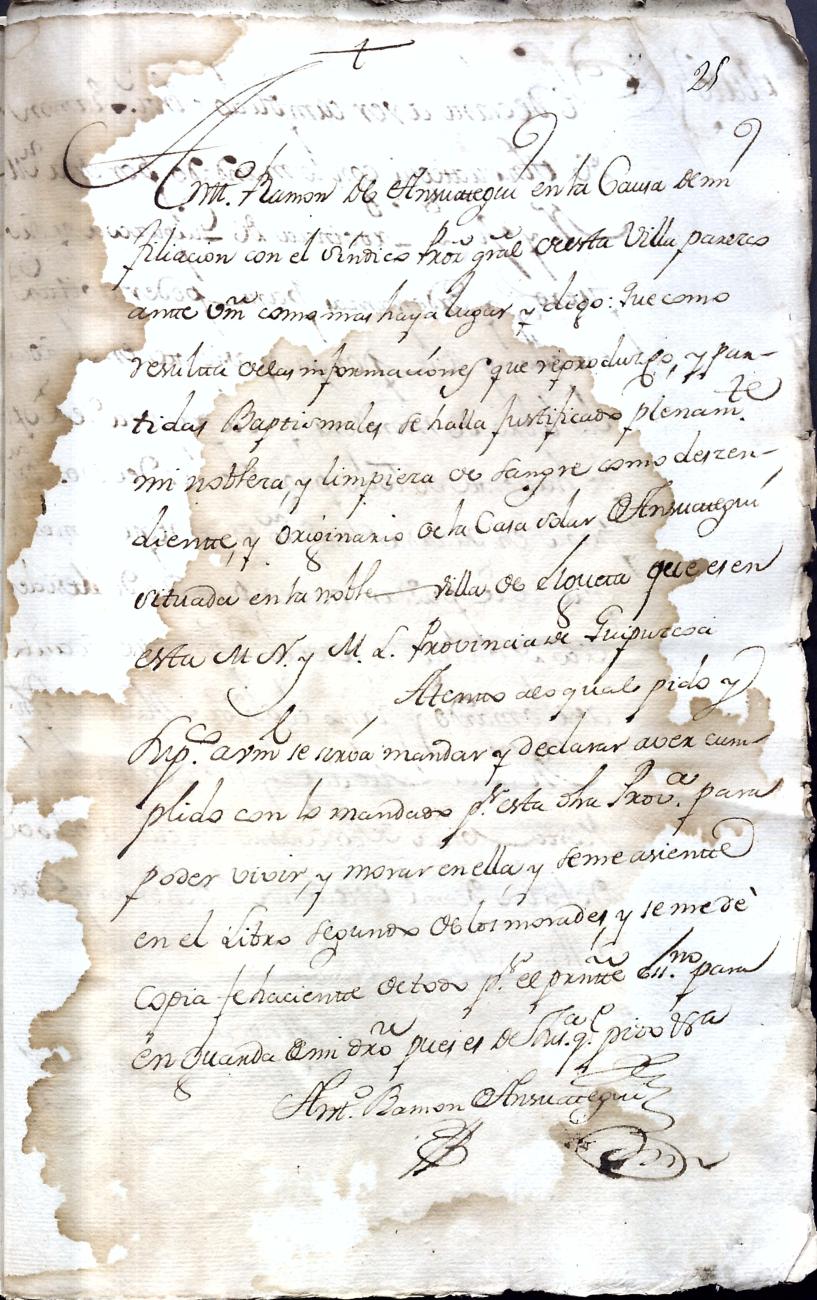 25
Antt.º Ramon de Ansuategui en la Causa de mi
filiacion con el Sindico Pror gral de esta Villa parezco
antte Vm como mas haya lugar y digo: que como
resulta de las informaciones que reproduzco, y par-
tidas Baptismales se halla justificado plenam.te
mi nobleza, y limpieza de sangre como deszen-
diente, y Originario de la Casa solar de Ansuategui
situada en la noble villa de Elgueta que es en
esta M. N. y M. L. Provincia de Guipuzcoa
Atento a lo qual pido y
sup.co a Vm se sirva mandar y declarar aver cum
plido con lo mandado p.r esta dha Prov.a para
poder vivir, y morar en ella y se me asiente
en el Libro segundo de los moradores, y se me dè
copia fehaciente de todo p.r el prntte Ess.no para
en guarda de mi dro pues es de Jus.a q.e pido &a
Antt.º Ramon de Ansuategui